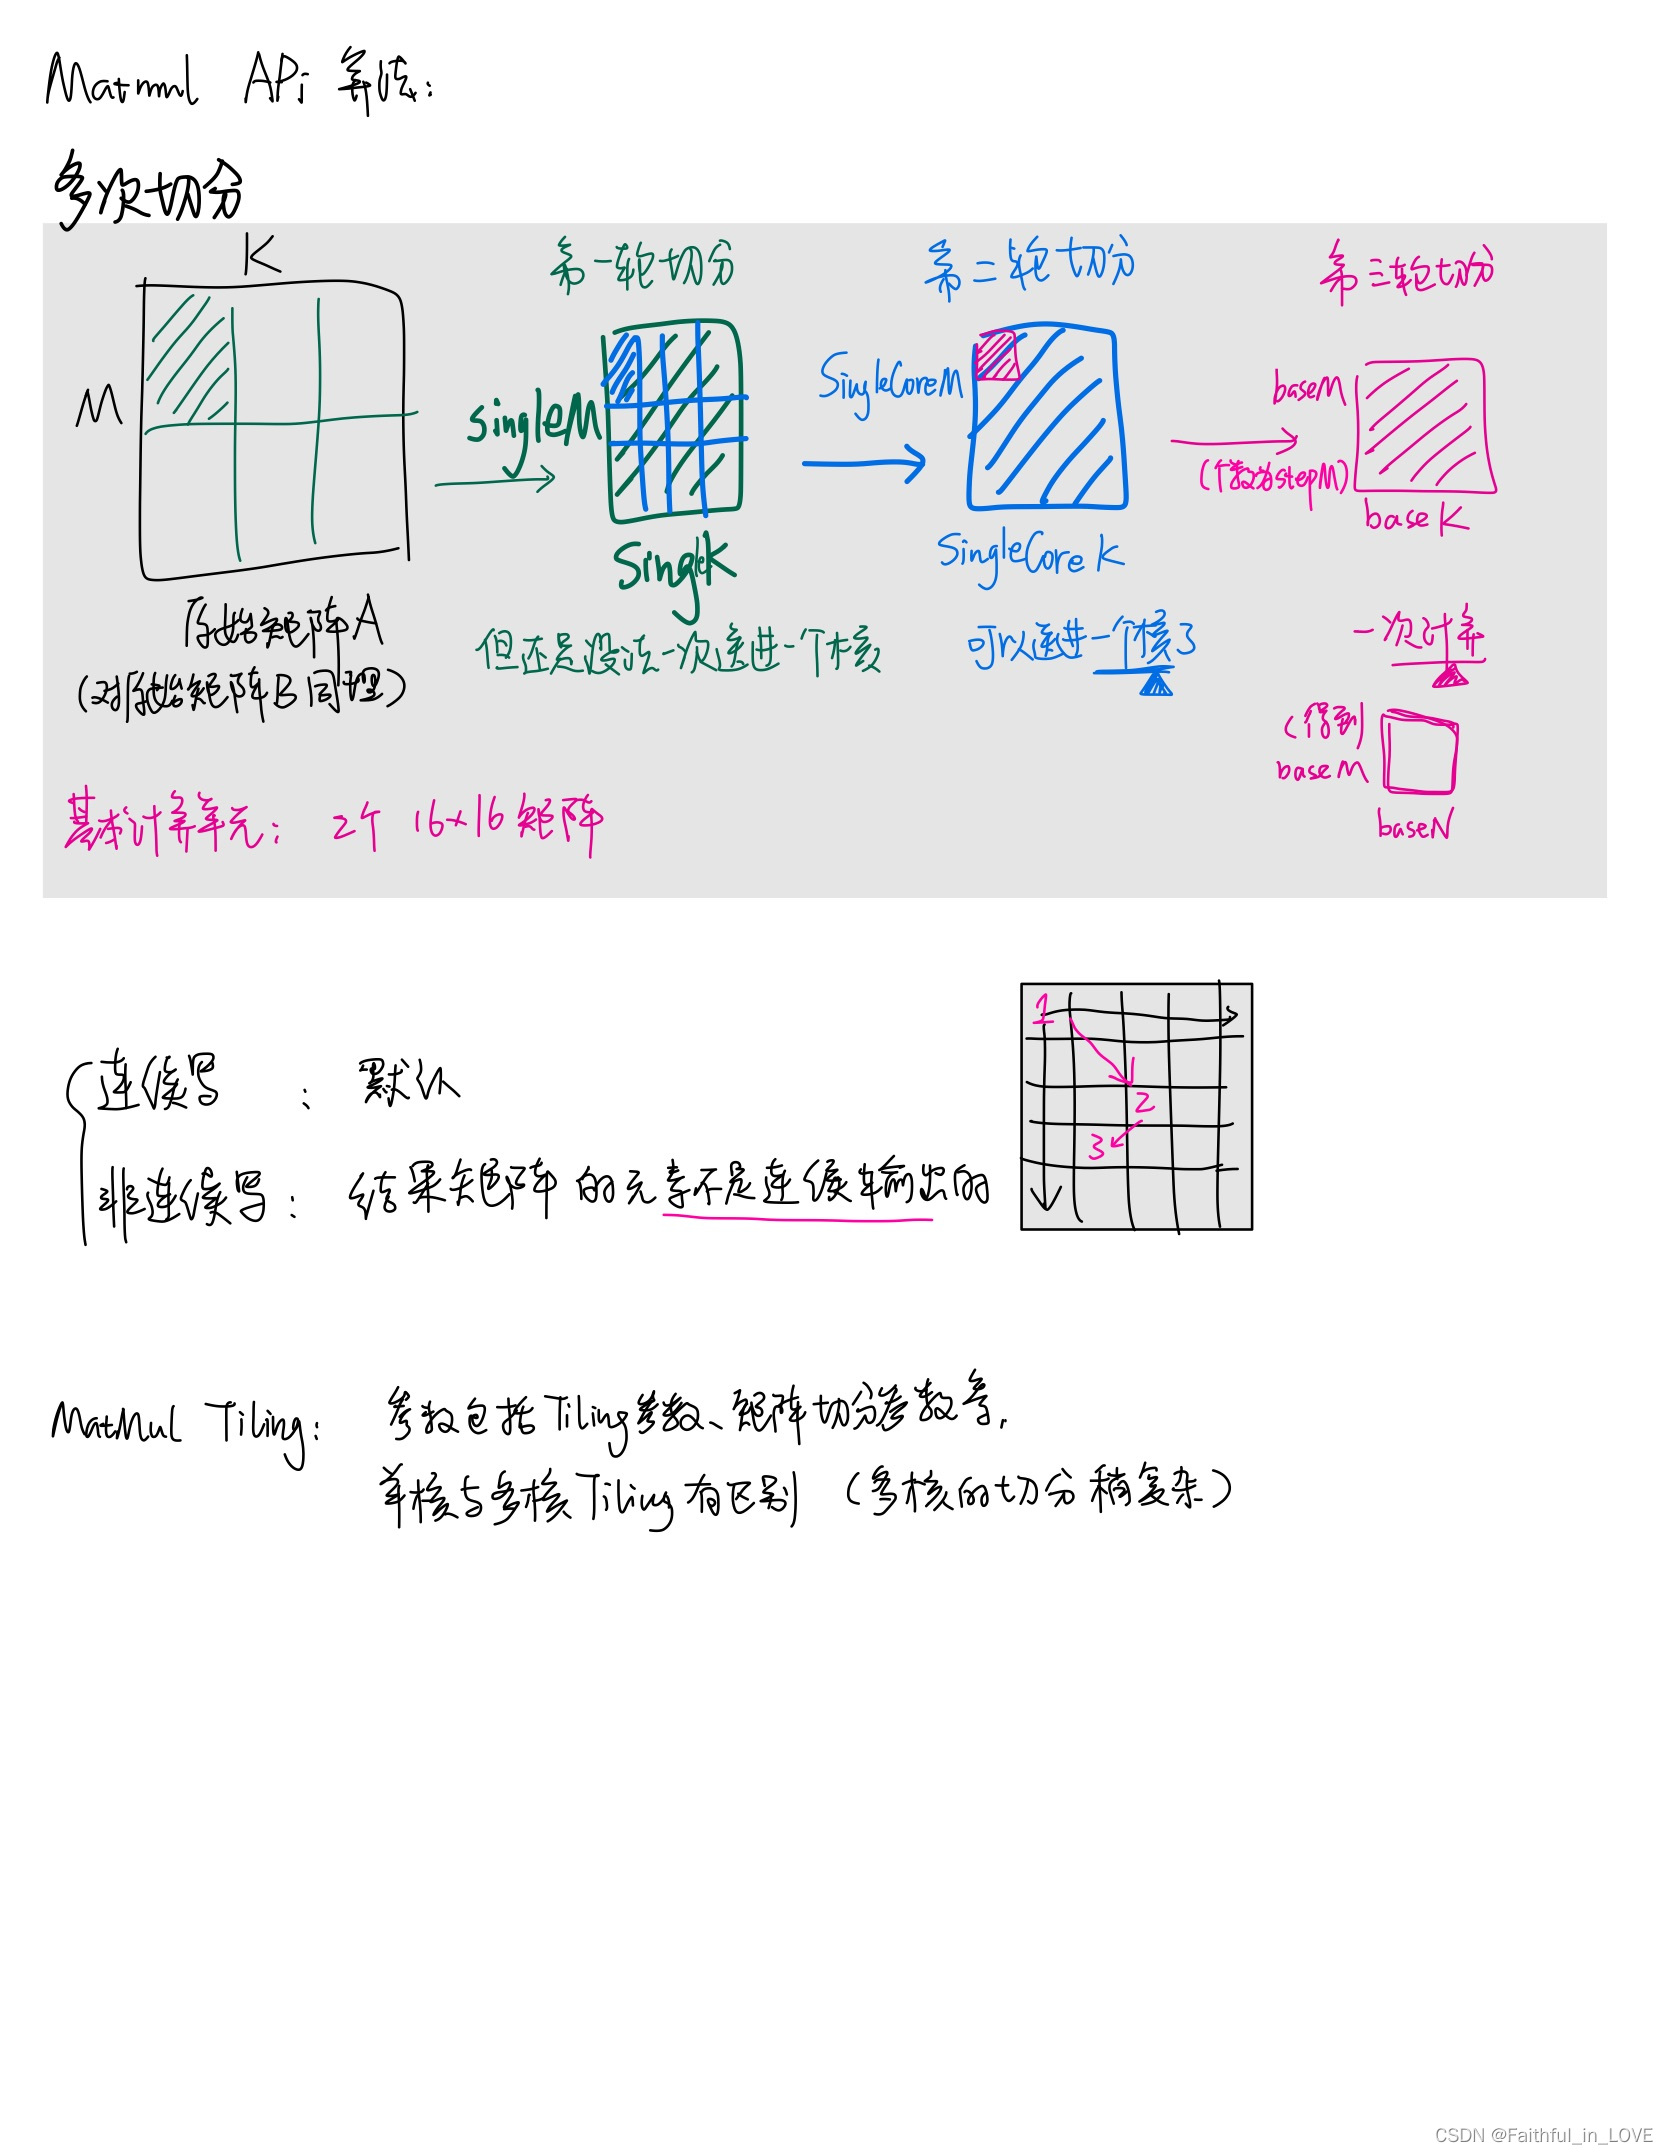 Matmul API 算法：
多次切分
K
第一轮切分
第二轮切分
第三轮切分
M
singleM
SingleCoreM
baseM
(个数为stepM)
baseK
SingleK
SingleCore K
原始矩阵A
(对原始矩阵B同理)
但还是没法一次送进一个核
可以送进一个核了
一次计算
(得到
baseM
baseN
基本计算单元： 2个 16×16 矩阵
1
2
3
连续写 ： 默认
非连续写： 结果矩阵的元素不是连续输出的
MatMul Tiling： 参数包括Tiling参数、矩阵切分参数等.
单核与多核Tiling有区别 (多核的切分稍复杂)
CSDN @Faithful_in_LOVE